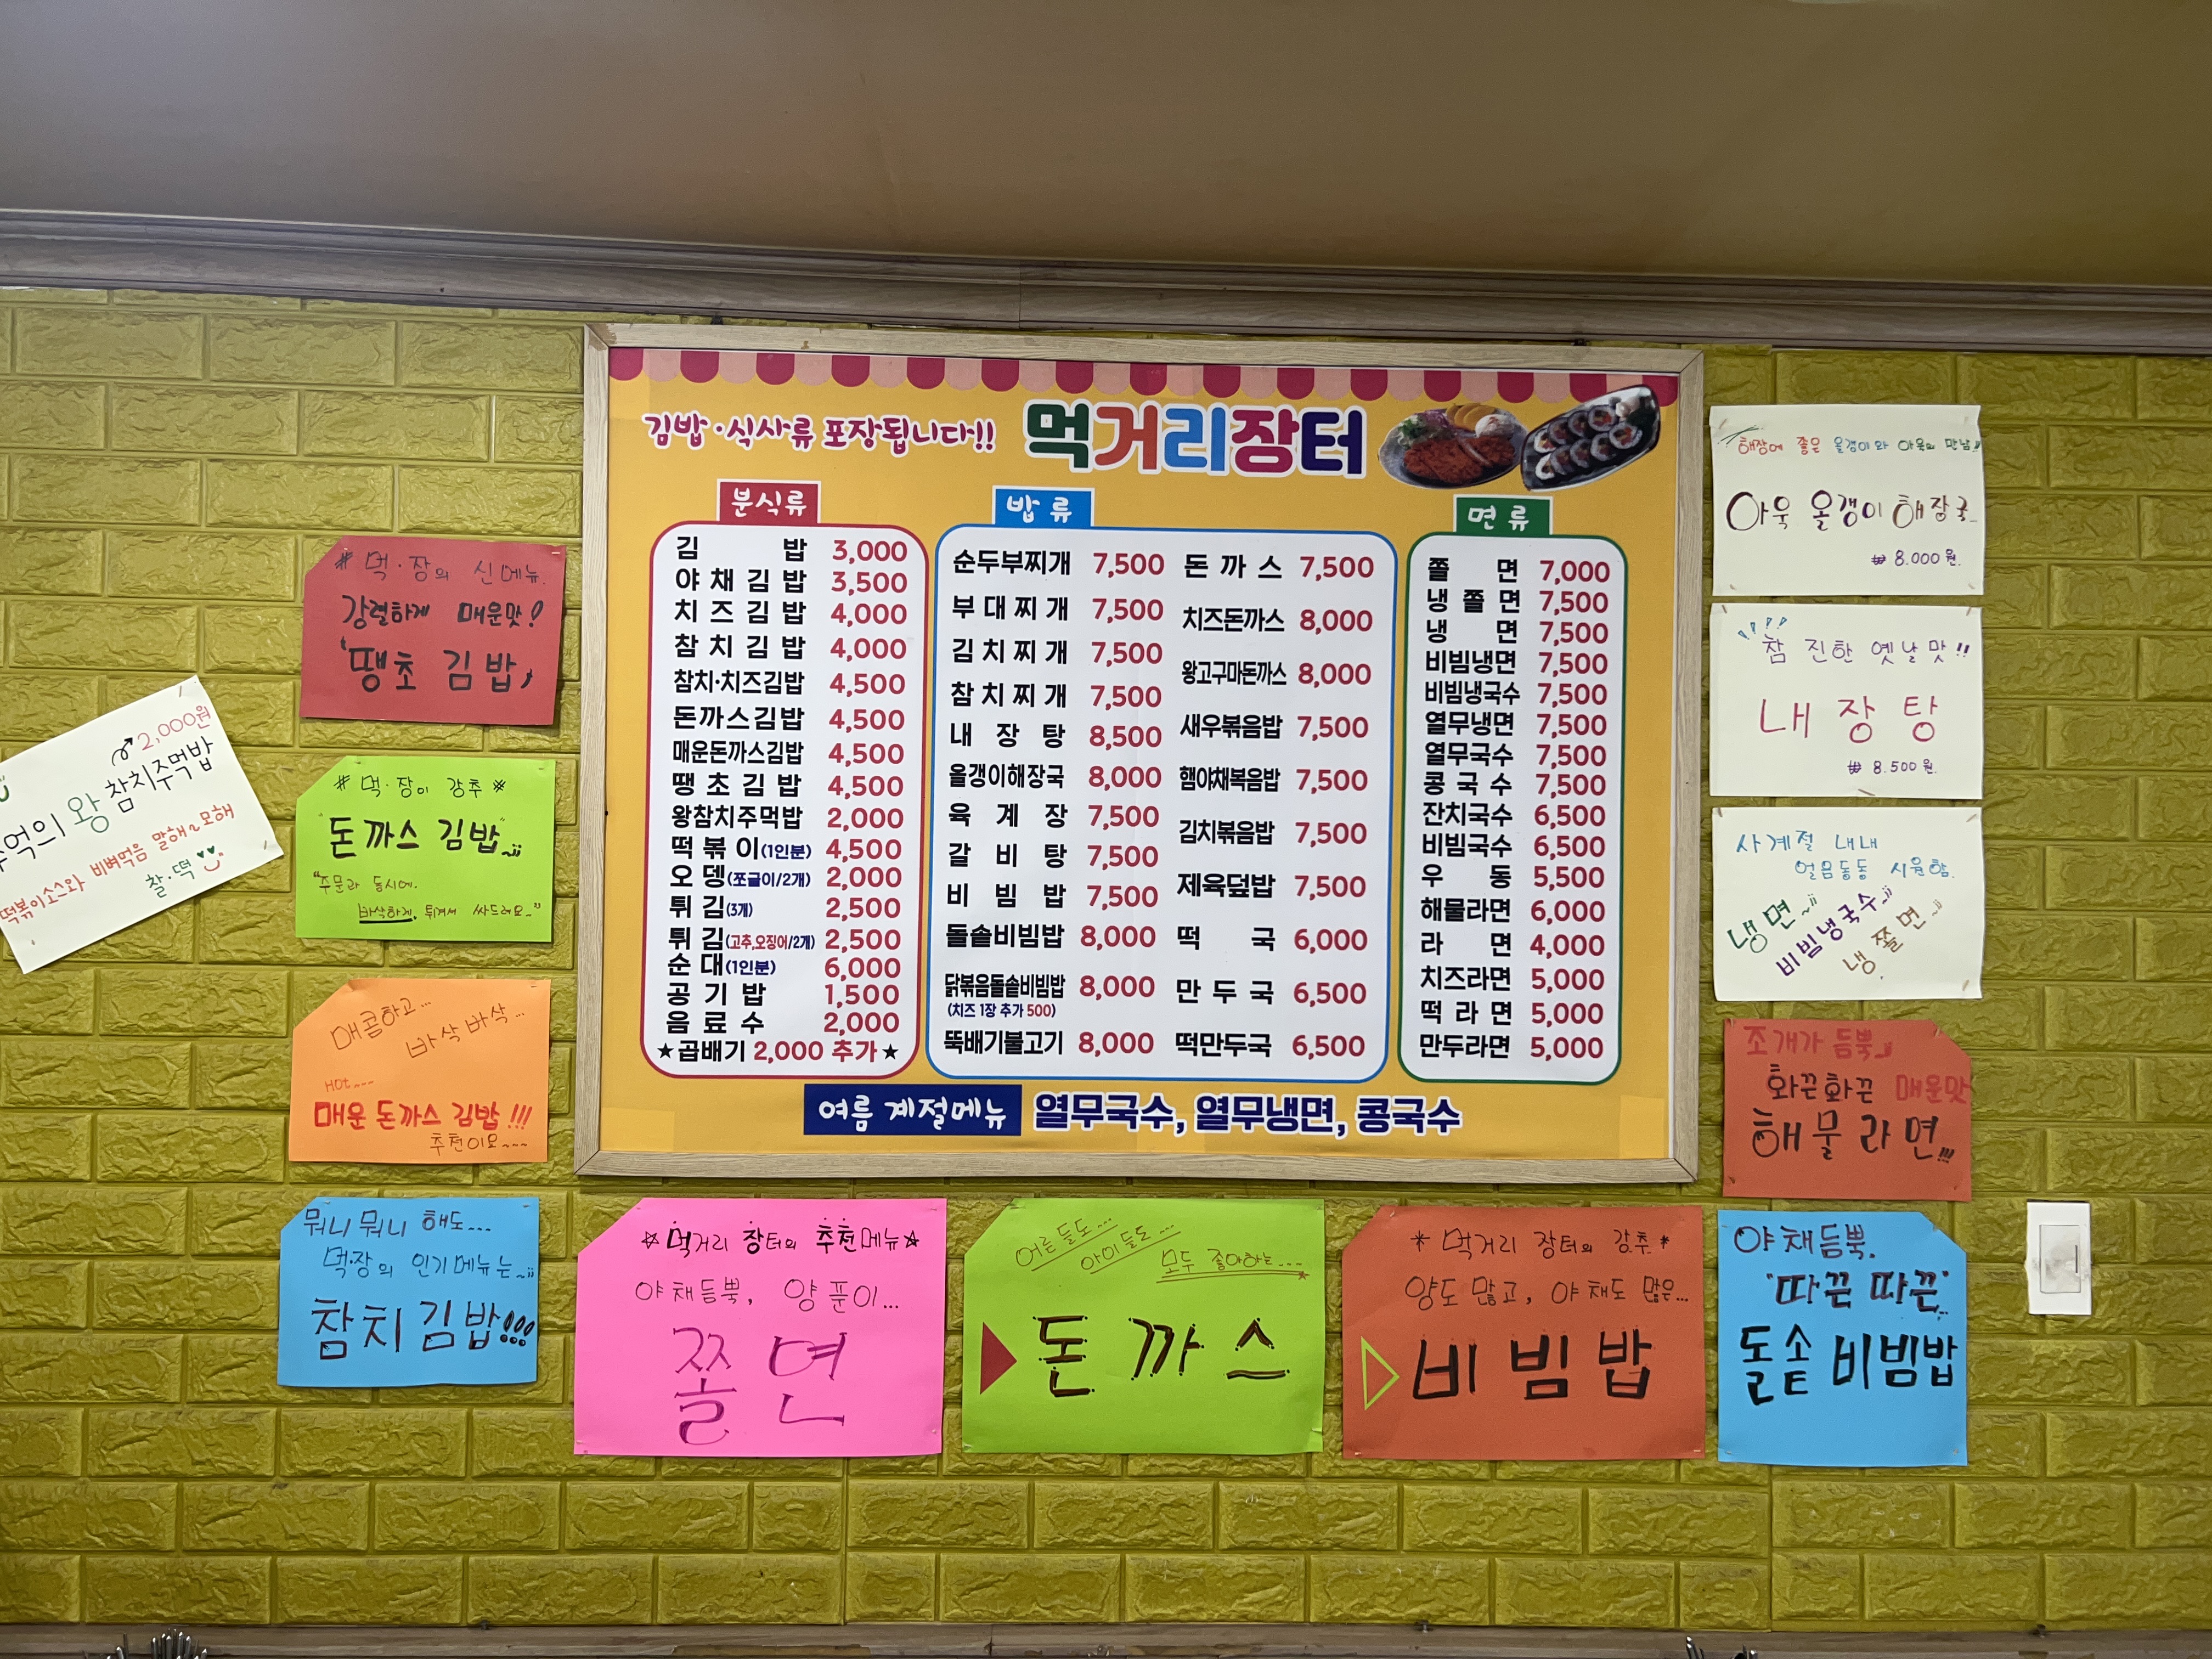 김밥·식사류 포장됩니다!! 먹거리장터
분식류
김 밥 3,000
야채김밥 3,500
치즈김밥 4,000
참치김밥 4,000
참치·치즈김밥 4,500
돈까스김밥 4,500
매운돈까스김밥 4,500
땡초김밥 4,500
왕참치주먹밥 2,000
떡볶이(1인분) 4,500
오뎅(쪼글이/2개) 2,000
튀김(3개) 2,500
튀김(고추,오징어/2개) 2,500
순대(1인분) 6,000
공기밥 1,500
음료수 2,000
★곱배기 2,000 추가★
밥류
순두부찌개 7,500
부대찌개 7,500
김치찌개 7,500
참치찌개 7,500
내장탕 8,500
올갱이해장국 8,000
육계장 7,500
갈비탕 7,500
비빔밥 7,500
돌솥비빔밥 8,000
닭볶음돌솥비빔밥 8,000
(치즈 1장 추가 500)
뚝배기불고기 8,000
돈까스 7,500
치즈돈까스 8,000
왕고구마돈까스 8,000
새우볶음밥 7,500
햄야채복음밥 7,500
김치볶음밥 7,500
제육덮밥 7,500
떡국 6,000
만두국 6,500
떡만두국 6,500
면류
쫄면 7,000
냉쫄면 7,500
냉면 7,500
비빔냉면 7,500
비빔냉국수 7,500
열무냉면 7,500
열무국수 7,500
콩국수 7,500
잔치국수 6,500
비빔국수 6,500
우동 5,500
해물라면 6,000
라면 4,000
치즈라면 5,000
떡라면 5,000
만두라면 5,000
여름 계절메뉴 열무국수, 열무냉면, 콩국수
# 먹·장의 신메뉴.
강렬하게 매운맛!
'땡초 김밥'
2,000원
추억의 왕참치주먹밥
떡볶이소스와 비벼먹음 말해~모해
찰·떡
# 먹·장이 강추 *
돈까스 김밥~
"주문과 동시에.
바삭하게. 튀겨서 싸드려요~"
매콤하고...
바삭바삭...
HOT~~~
매운 돈까스 김밥!!!
추천이요~~~
뭐니뭐니 해도...
먹·장의 인기메뉴는~
참치김밥!!!
☆먹거리 장터의 추천메뉴★
야채듬뿍, 양푼이...
쫄면
어른들도...
아이들도...
모두 좋아하는...
돈까스
* 먹거리 장터의 강추 *
양도 많고, 야채도 많은...
비빔밥
해장에 좋은 올갱이와 아욱의 만남!!
아욱 올갱이 해장국
₩ 8.000원.
참 진한 옛날맛!!
내장탕
₩ 8.500원.
사계절 내내
얼음동동 시원함.
냉면~
비빔냉국수~
냉.쫄면~
조개가 듬뿍
화끈화끈 매운맛
해물라면!!!
야채듬뿍.
"따끈 따끈"
돌솥 비빔밥